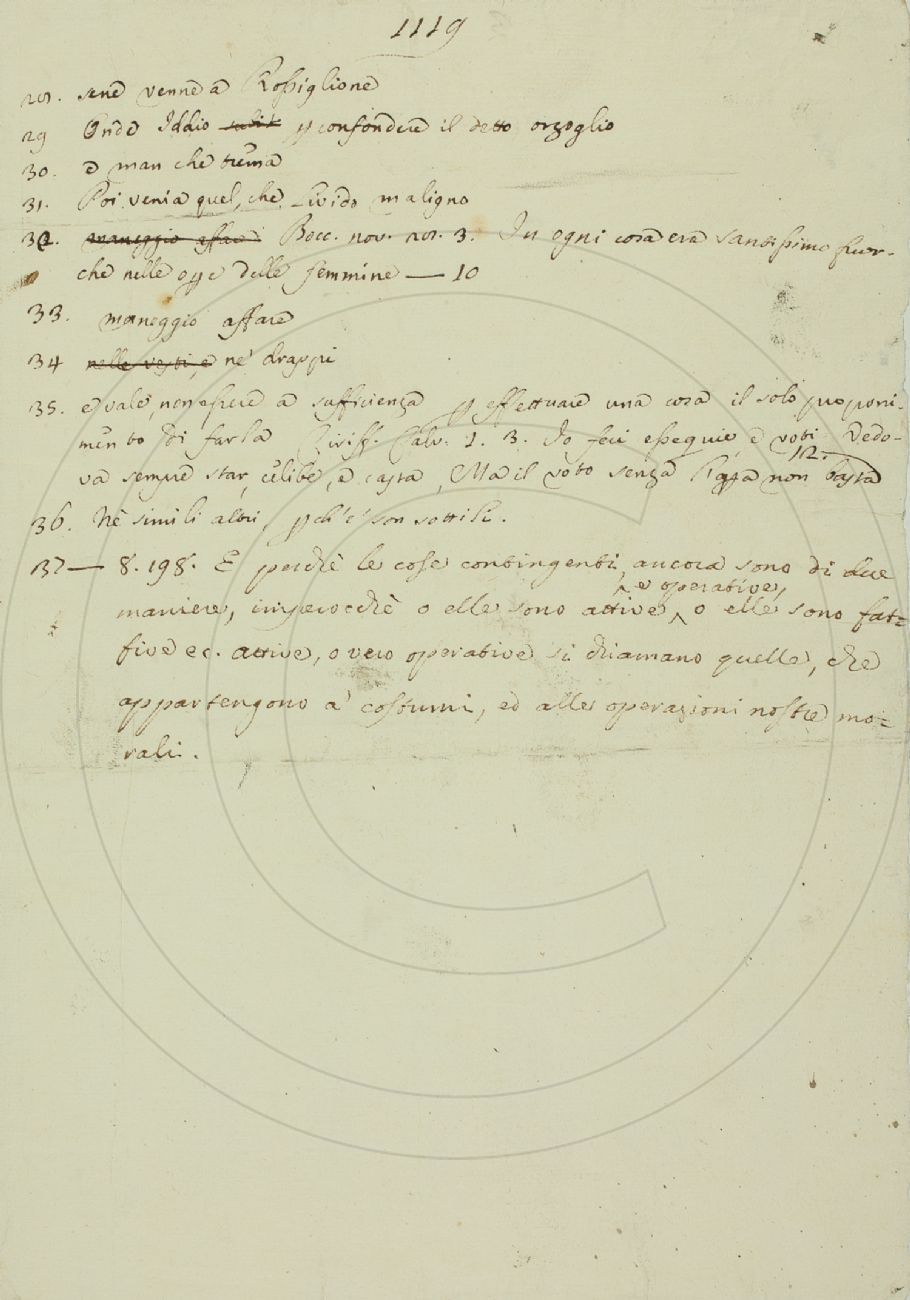 1119
28. sene venne a Rossiglione
29 Onde Iddio subit p confondere il detto orgoglio
30. e man che trema
31. Poi venia quel, che Livido maligno
32. maneggio affare Bocc. nov. 28. 3. In ogni cosa era santissimo fuor-
che nelle opre delle femmine — 10
33. maneggio affare
34 nelle vesti, e ne' drappi
35. e vale, non essere a sufficienza p effettuare una cosa il solo proponi-
mento di farla Ciriff. Calv. 1. 3. Io feci essequie, e voti Vedo-
12.
va sempre star, celibe, e casta, Ma il voto senza l'opra non basta
36. Nè simili altri, p ch' e' son sottili.
37— 8. 198. E perchè le cose contingenti, ancora sono di due
e operative,
maniere, imperocchè o elle sono attive, o elle sono fat=
tive ec. attive, o vero operative si chiamano quelle, che
appartengono a' costumi, ed alle operazioni nostre mo=
rali.